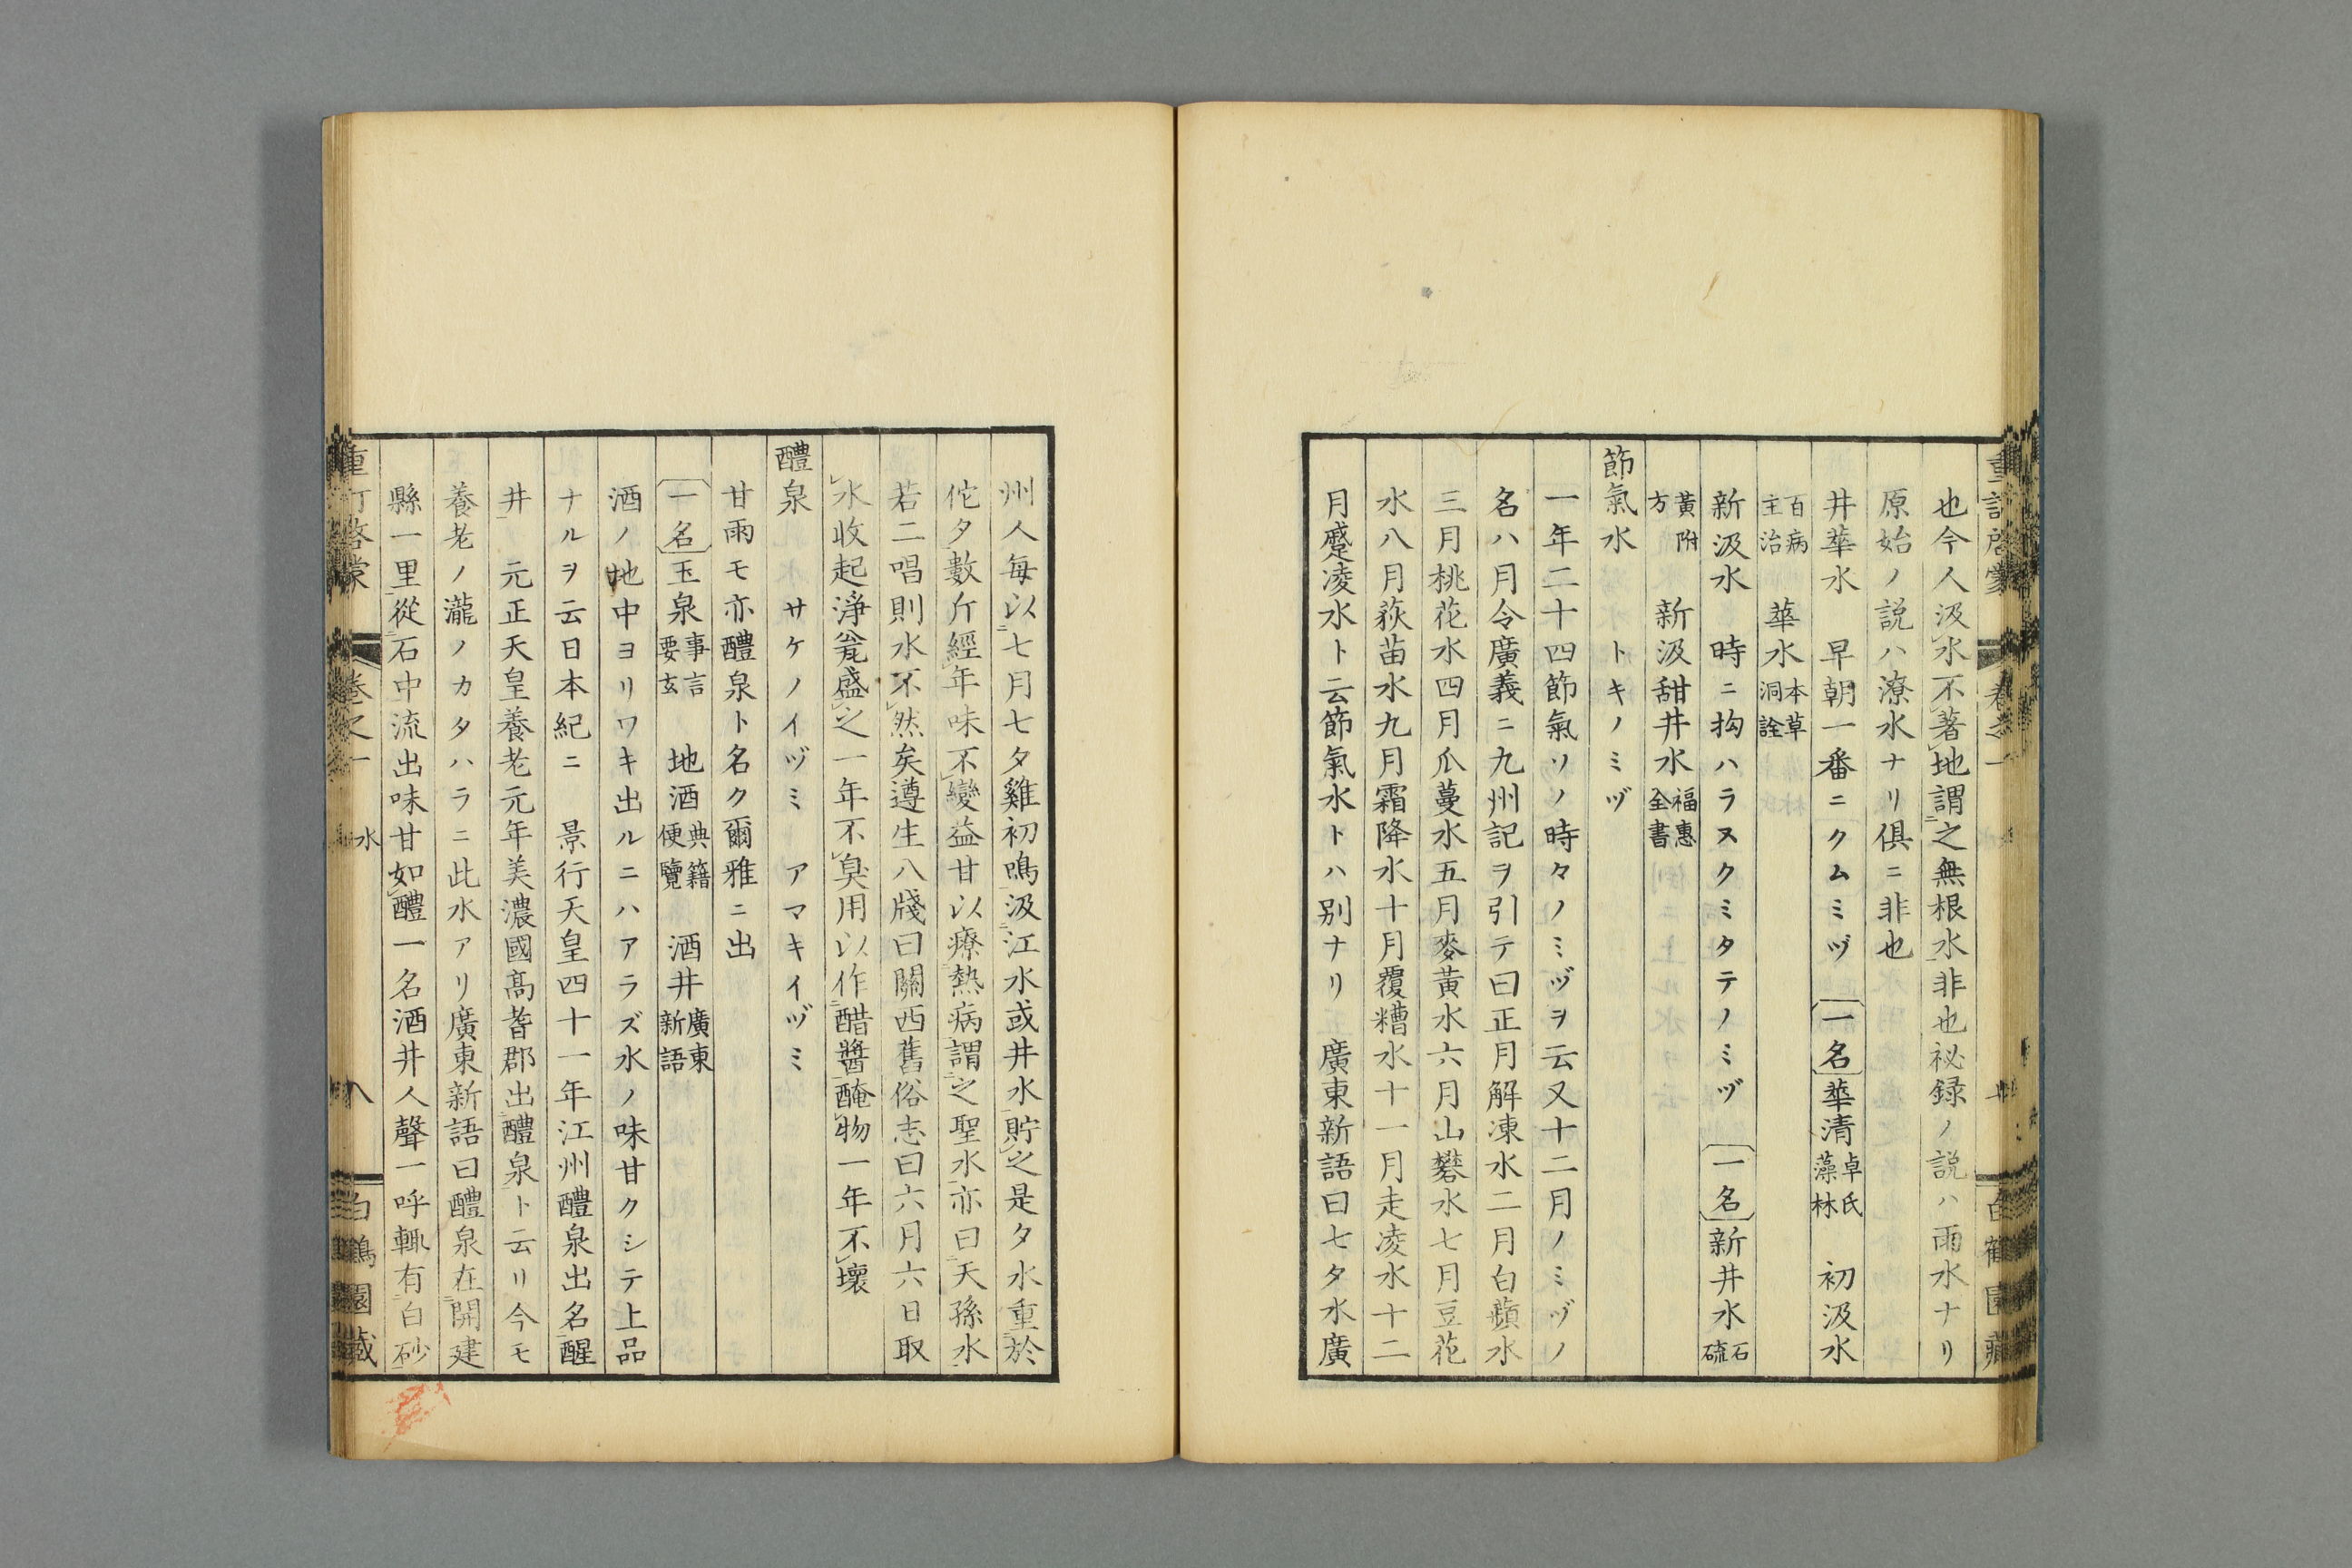 也今人汲水不著地謂之無根水非也祕録ノ説ハ雨水ナリ
原始ノ説ハ潦水ナリ倶ニ非也
井華水　早朝一番ニクムミヅ　一名華清卓氏藻林　初汲水
百病主治　華水本草洞詮
新汲水　時ニ拘ハラスクミタテノミヅ　一名新井水石硫
黄附方　新汲甜井水福惠全書
節氣水　トキノミヅ
一年二十四節氣ソノ時々ノミヅヲ云又十二月ノミヅノ
名ハ月令廣義ニ九州記ヲ引テ曰正月解凍水二月白蘋水
三月桃花水四月瓜蔓水五月麥黃水六月山礬水七月豆花
水八月荻苗水九月霜降水十月覆糟水十一月走凌水十二
月蹙凌水ト云節氣水トハ別ナリ　廣東新語曰七夕水廣
州人毎以七月七夕雞初鳴汲江水或井水貯之是夕水重於
佗夕數斤經年味不變益甘以療熱病謂之聖水亦曰天孫水
若二唱則水不然矣遵生八牋曰關西舊俗志曰六月六日取
水收起淨瓮盛之一年不臭用以作醋醬醃物一年不壞
醴泉　サケノイヅミ　アマキイヅミ
甘雨モ亦醴泉ト名ク爾雅ニ出
一名玉泉事言要玄　地酒典籍便覽　酒井廣東新語
酒ノ地中ヨリワキ出ルニハアラズ水ノ味甘クシテ上品
ナルヲ云日本紀ニ　景行天皇四十一年江州醴泉出名醒
井　元正天皇養老元年美濃國高耆郡出醴泉ト云リ今モ
養老ノ瀧ノカタハラニ此水アリ廣東新語曰醴泉在開建
縣一里從石中流出味甘如醴一名酒井人聲一呼輒有白砂
重訂啓蒙　卷之一　水　八　白鶴園藏